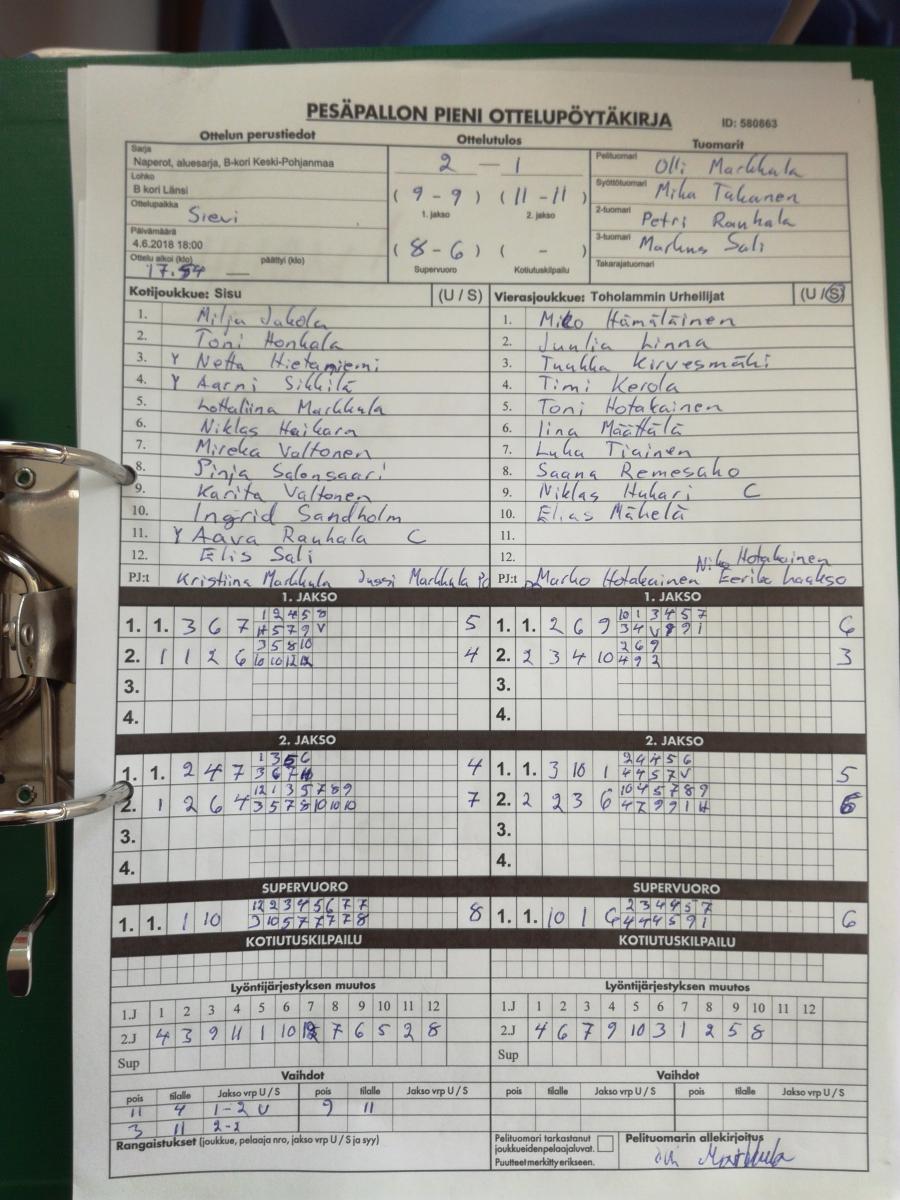 PESÄPALLON PIENI OTTELUPÖYTÄKIRJA ID: 580863
Ottelun perustiedot Ottelutulos Tuomarit
Sarja
Naperot, aluesarja, B-kori Keski-Pohjanmaa
Lohko
B kori Länsi
Ottelupaikka Sievi
Päivämäärä
4.6.2018 18:00
Ottelu alkoi (klo) päättyi (klo)
17.54
2 — 1
( 9 - 9 ) ( 11 - 11 )
1. jakso 2. jakso
( 8 - 6 ) ( - )
Supervuoro Kotiutuskilpailu
Pelituomari Olli Markkula
Syöttötuomari Mika Takanen
2-tuomari Petri Rauhala
3-tuomari Markus Sali
Takarajatuomari
Kotijoukkue: Sisu (U / S)
1. Milja Jakola
2. Toni Honkala
3. Y Netta Hietaniemi
4. Y Aarni Sikkilä
5. Lottaliina Markkula
6. Niklas Haikara
7. Mireka Valtonen
8. Pinja Salonsaari
9. Karita Valtonen
10. Ingrid Sandholm
11. Y Aava Rauhala C
12. Elis Sali
PJ:t Kristiina Markkula Jussi Markkula
Vierasjoukkue: Toholammin Urheilijat (U / S)
1. Miko Hämäläinen
2. Juulia Linna
3. Tuukka Kirvesmäki
4. Timi Kerola
5. Toni Hotakainen
6. Iina Määttälä
7. Luka Tiainen
8. Saana Remesaho
9. Niklas Huhari C
10. Elias Mäkelä
11.
12. Niko Hotakainen
PJ:t Marko Hotakainen Eerika Laakso
1. JAKSO 1. JAKSO
1. 1. 3 6 7 1 2 4 5 8 5
11 5 7 9 V
2. 1 1 2 6 3 5 8 10 4
10 10 12 12
3.
4.
1. 1. 2 6 9 10 1 3 4 5 7 6
3 4 V 8 9 1
2. 2 3 4 10 2 6 9 3
4 9 2
3.
4.
2. JAKSO 2. JAKSO
1. 1. 2 4 7 1 3 5 6 4
3 6 7 11
2. 1 2 6 4 12 1 3 5 7 8 9 7
3 5 7 8 10 10 10
3.
4.
1. 1. 3 10 1 2 4 4 5 6 5
4 4 5 7 V
2. 2 2 3 6 10 4 5 7 8 9 6
4 7 9 9 1 11
3.
4.
SUPERVUORO SUPERVUORO
1. 1. 1 10 12 2 3 4 5 6 7 7 8
3 10 5 7 7 7 7 8
1. 1. 10 1 6 2 3 4 4 5 7 6
4 4 4 5 9 1
KOTIUTUSKILPAILU KOTIUTUSKILPAILU
Lyöntijärjestyksen muutos Lyöntijärjestyksen muutos
1.J 1 2 3 4 5 6 7 8 9 10 11 12 1.J 1 2 3 4 5 6 7 8 9 10 11 12
2.J 4 3 9 11 1 10 12 7 6 5 2 8 2.J 4 6 7 9 10 3 1 2 5 8
Sup Sup
Vaihdot Vaihdot
pois tilalle Jakso vrp U / S pois tilalle Jakso vrp U / S pois tilalle Jakso vrp U / S pois tilalle Jakso vrp U / S
11 4 1-2 U 9 11
3 11 2-2
Rangaistukset (joukkue, pelaaja nro, jakso vrp U / S ja syy)
Pelituomari tarkastanut
joukkueidenpelaajaluvat.
Puutteet merkitty erikseen.
Pelituomarin allekirjoitus
Olli Markkula